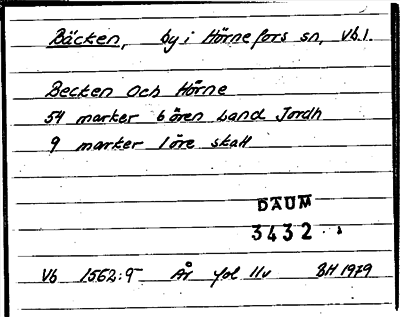 Bäcken, by i Hörnefors sn, Vb.l.
Becken och Hörne
54 marker 6 ören Land Jordh
9 marker 1 öre skatt
DAUM
3432
Vb 1562:9 År fol 11v BH 1979